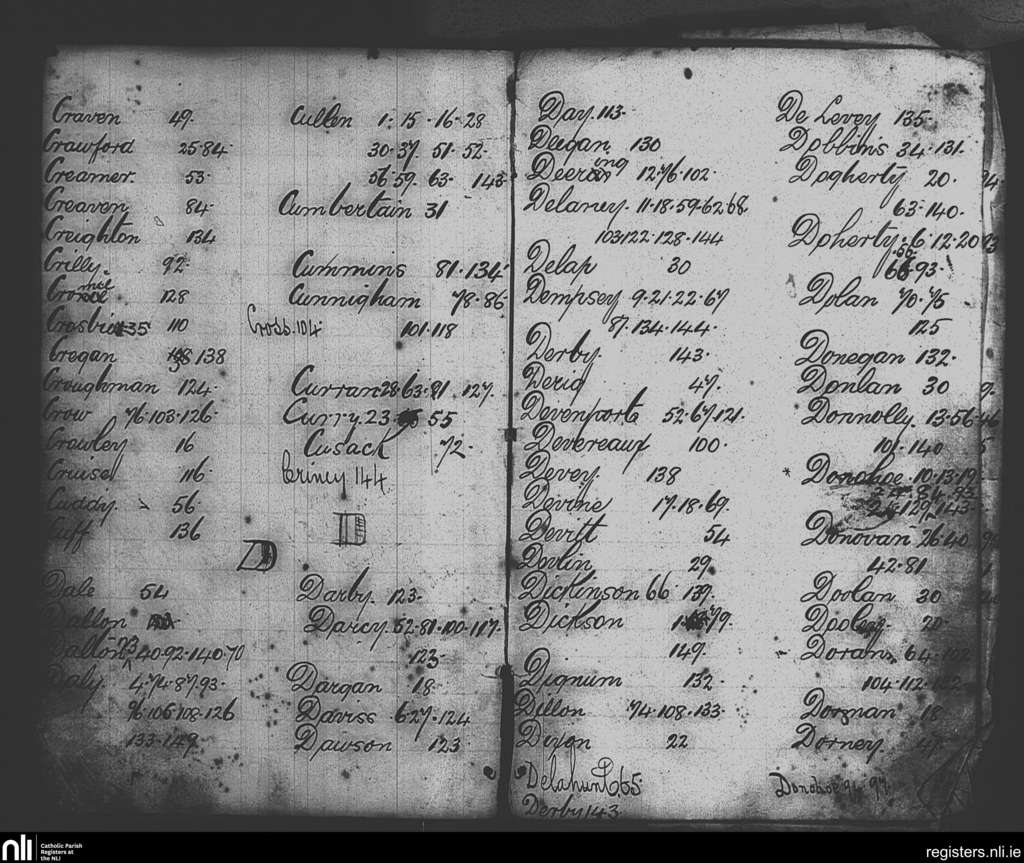 Craven 49.
Crawford 25·84·
Creamer. 53·
Creaven 84·
Creighton 134
Crilly 92·
128
Crosbie 135 110
Cregan 138
Croughman 124·
Crow 76·103·126·
Crawley 16
Cruise 116·
Cuddy 56·
Cuff 136
Cullen 1· 15· 16· 28
30·37· 51·52·
56·59· 63· 143
Cumbertain 31
Cummins 81·134·
Cunnigham 78·86·
Cross·104 101·118
Curran 28·63·81·127·
Curry 23· 55
Cusack 72·
Criney 144
D D
Dale 54
Dallon
Dalton 73 40·92·140·70
Daly 4·74·87·93·
96·106·108·126
133·149
Darby. 123·
Darcy. 52·81·100·117·
123·
Dargan 18·
Daviss 6·27·124
Dawson 123
Day 113·
Deegan 130
Deering 12·76·102·
Delaney 11·18·59·62·68·
103·122·128·144
Delap 30
Dempsey 9·21·22·67
87·134·144·
Derby. 143·
Derig 47·
Devenporte 52·67·121·
Devereaux 100·
Devey 138
Devine 17·18·69·
Devitt 54
Devlin 29
Dickinson 66 139·
Dickson 79·
149·
Dignum 132·
Dillon 74·108·133·
Dixon 22
Delahunt 65·
Derby 143·
De Levey 135·
Dobbins 34·131·
Dogherty 20·
63·140·
Doherty·6·12·20
56·
66·93·
Dolan 70·75
125
Donegan 132·
Donlan 30
Donnolly. 13·56·
101·140
* Donohoe·10·13·19
84·93
24·129·143·
Donovan 26·40
42·81
Doolan 30
Dooley 20·
Dorans 64·102
104·112·122
Dorgnan 18
Dorney. 47·
Donohoe 94· 97·
nli Catholic Parish
Registers at
the NLI
registers.nli.ie